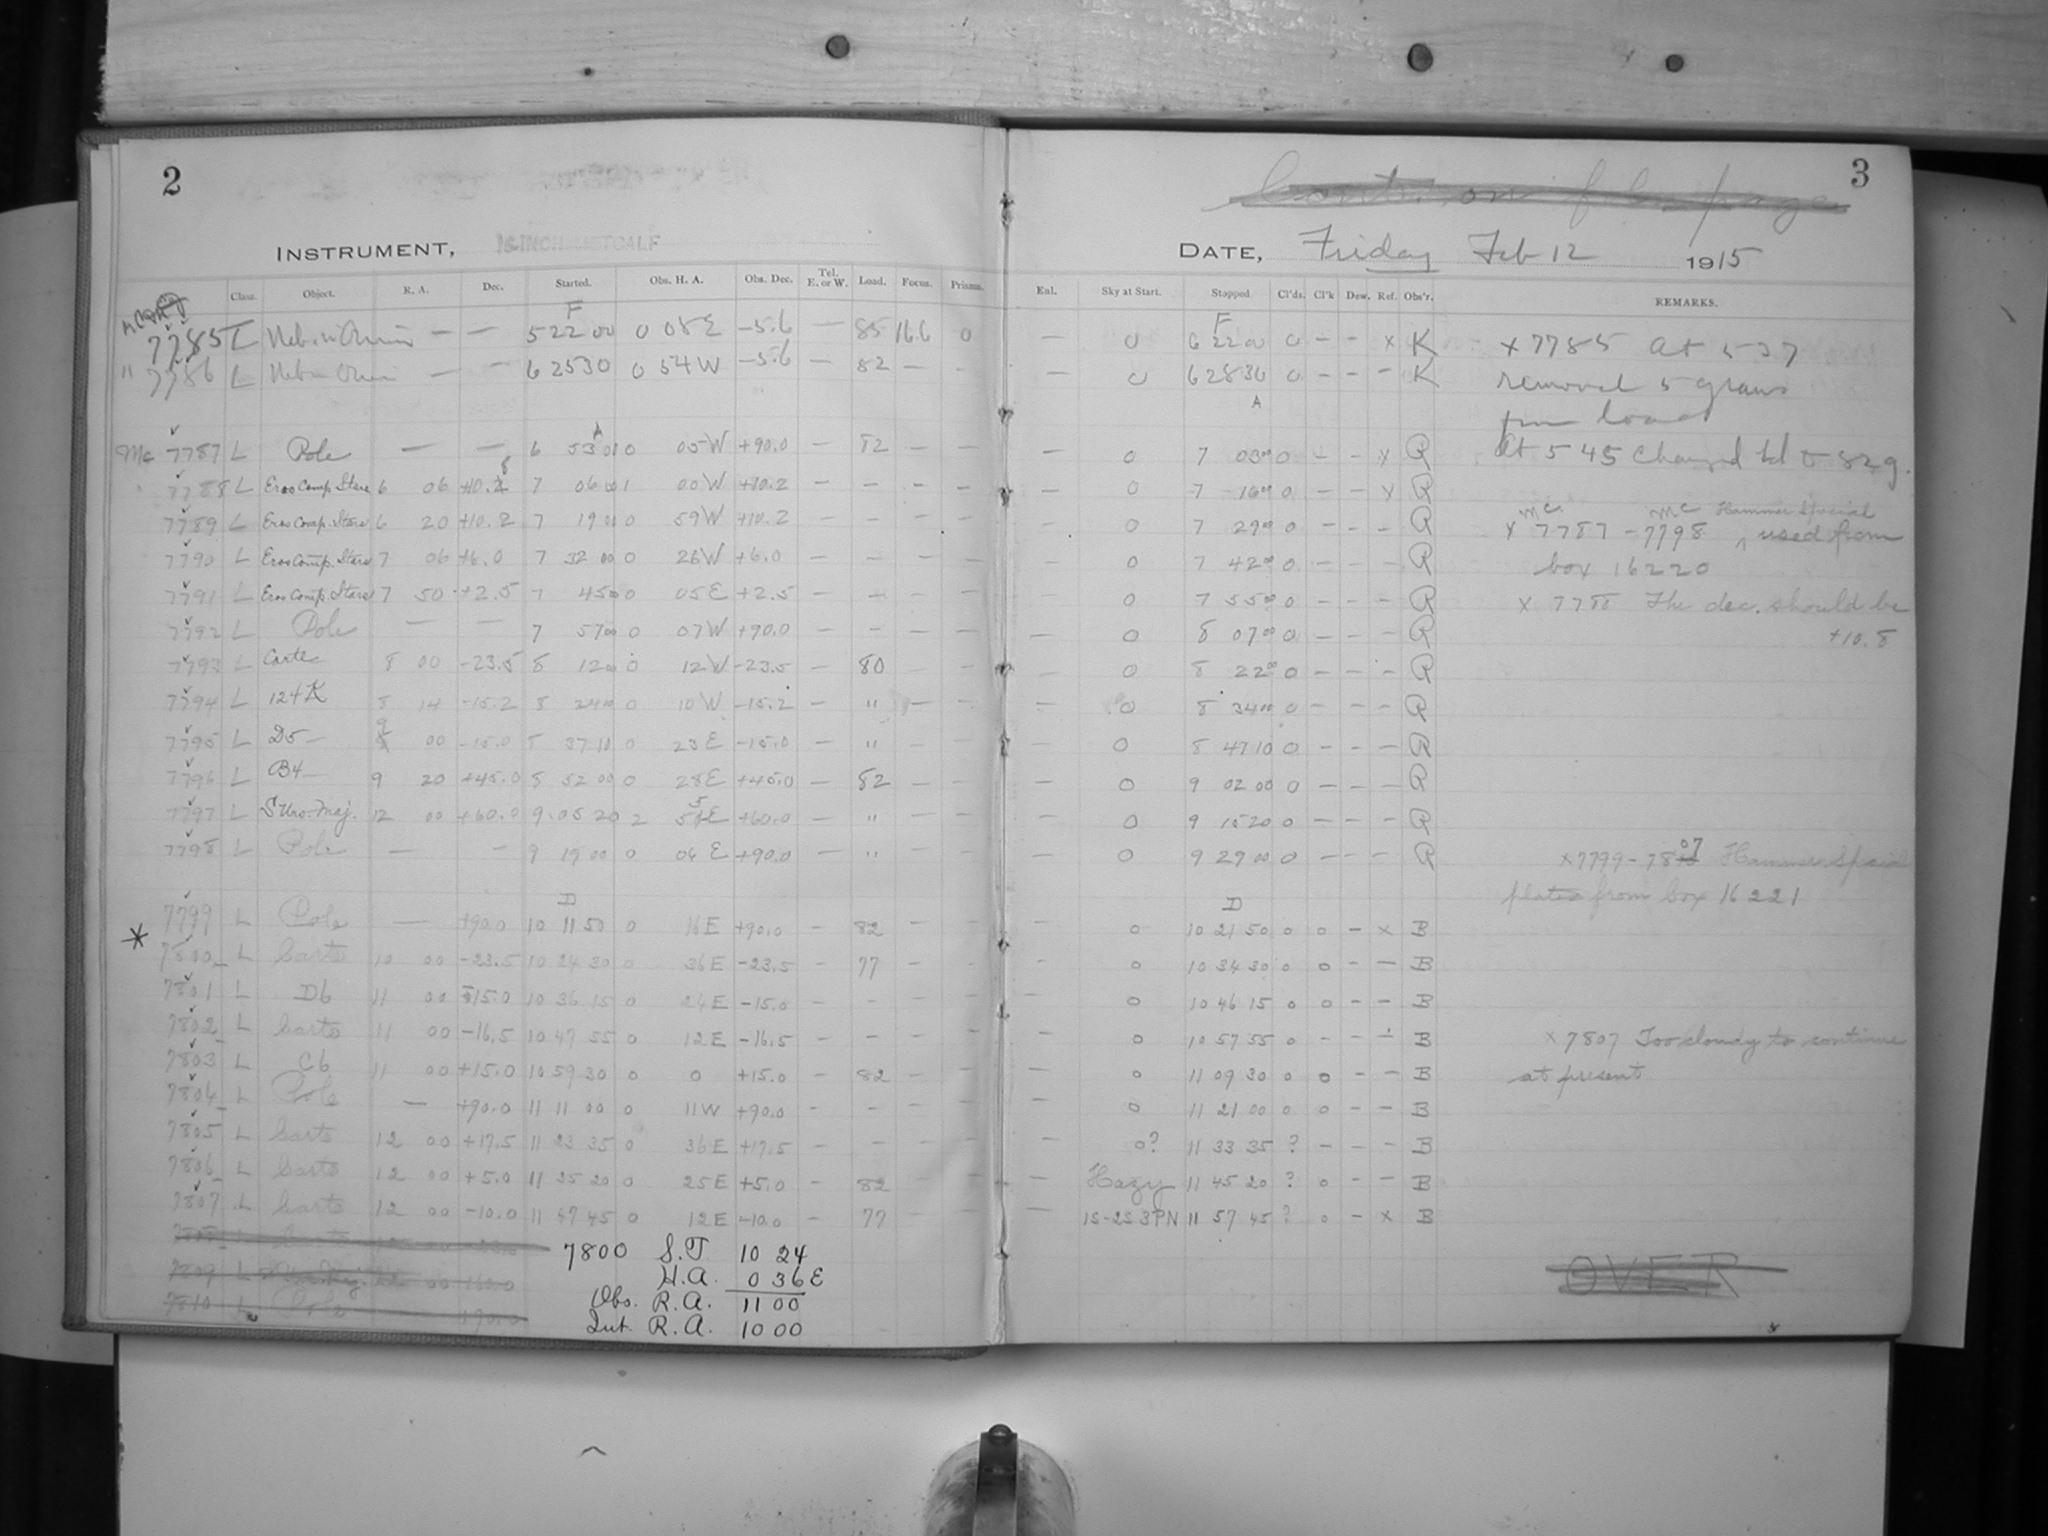 2
INSTRUMENT, 16 INCH METCALF
Class. Object. R. A. Dec. Started. Obs. H. A. Obs. Dec. Tel. E. or W. Load. Focus. Prisms.
F
7785 L Neb. in Orion — — 5 22 00 0 08 E -5.6 — 85 16.6 0
" 7786 L Neb in Orion — — 6 25 30 0 54 W -5.6 — 82 — —
A
Mc 7787 L Pole — — 6 53 01 0 05 W +90.0 — 82 — —
7788 L Eros Comp. Stars 6 06 +10.2 8 7 06 00 1 00 W +10.2 — — — —
7789 L Eros Comp. Stars 6 20 +10.2 7 19 00 0 59 W +10.2 — — — —
7790 L Eros Comp. Stars 7 06 +6.0 7 32 00 0 26 W +6.0 — — — —
7791 L Eros Comp. Stars 7 50 +2.5 7 45 00 0 05 E +2.5 — — — —
7792 L Pole — — 7 57 00 0 07 W +90.0 — — — —
7793 L Carte 8 00 -23.5 8 12 00 0 12 W -23.5 — 80 — —
7794 L 124 K 8 14 -15.2 8 24 00 0 10 W -15.2 — " — —
7795 L D5 — 9 00 -15.0 8 37 10 0 23 E -15.0 — " — —
7796 L B4 — 9 20 +45.0 8 52 00 0 28 E +45.0 — 82 — —
7797 L S Urs. Maj. 12 00 +60.0 9 05 20 2 55 E +60.0 — " — —
7798 L Pole — — 9 19 00 0 04 E +90.0 — " — —
D
7799 L Pole — +90.0 10 11 50 0 16 E +90.0 - 82 - -
* 7800 L Carte 10 00 -23.5 10 24 30 0 36 E -23.5 - 77 - -
7801 L D6 11 00 -15.0 10 36 15 0 24 E -15.0 - - - -
7802 L Carte 11 00 -16.5 10 47 55 0 12 E -16.5 - - - -
7803 L C6 11 00 +15.0 10 59 30 0 0 +15.0 - 82 - -
7804 L Pole — +90.0 11 11 00 0 11 W +90.0 - - - -
7805 L Carte 12 00 +17.5 11 23 35 0 36 E +17.5 - - - -
7806 L Carte 12 00 +5.0 11 35 20 0 25 E +5.0 - 82 - -
7807 L Carte 12 00 -10.0 11 47 45 0 12 E -10.0 - 77 - -
7808
7809 L
7810 L Pole +90.0
7800 S.T 10 24
H.A. 0 36 E
Obs. R.A. 11 00
Int. R.A. 10 00
3
Cont. on page
DATE, Friday Feb 12 1915
Enl. Sky at Start. Stopped Cl'ds. Cl'k Dew. Ref. Obs'r. REMARKS.
F
0 6 22 00 0 - - x K
— 0 6 28 30 0 - - - K
A
— 0 7 03 00 0 - - x R
— 0 7 16 00 0 — — x R
0 7 29 00 0 — — — R
— 0 7 42 00 0 — — — R
0 7 55 00 0 — — — R
— 0 8 07 00 0 — — — R
0 8 22 00 0 — — — R
— 0 8 34 00 0 — — — R
0 8 47 10 0 — — — R
— 0 9 02 00 0 — — — R
0 9 15 20 0 — — — R
— 0 9 29 00 0 — — — R
D
0 10 21 50 0 0 - x B
0 10 34 30 0 0 - - B
— 0 10 46 15 0 0 - - B
— 0 10 57 55 0 - - - B
— 0 11 09 30 0 0 - - B
— 0 11 21 00 0 0 - - B
— 0? 11 33 35 ? - - - B
— Hazy 11 45 20 ? 0 - - B
— 15-25 3PN 11 57 45 ? 0 - x B
x 7785 At 537
removed 5 grams
from load
At 5 45 changed ld to 82 g.
x Mc 7787 - Mc 7798 Hammer Special used from
box 16220
x 7788 The dec. should be
+10.8
x 7799 - 7807 Hammer Special
plates from box 16221
x 7807 Too cloudy to continue
at present
OVER